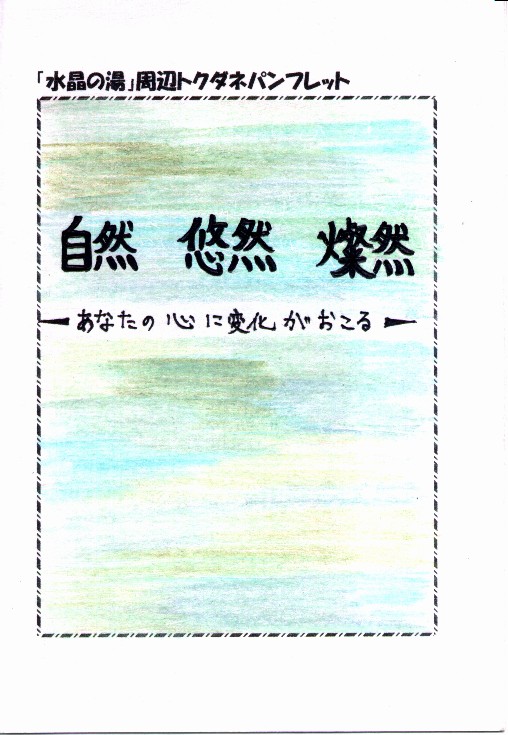 「水晶の湯」周辺トクダネパンフレット
自然 悠然 燦然
あなたの心に変化がおこる